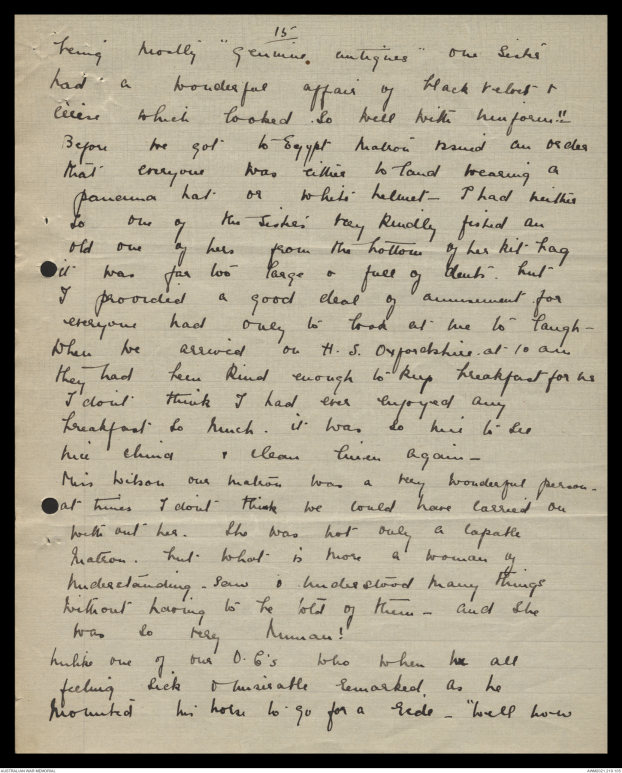 15
being mostly "genuine antiques" one Sister
had a wonderful affair of black velvet &
cerise which looked so well with uniform!!
Before we got to Egypt Matron issued an order
that everyone was either to land wearing a
panama hat or white helmet – I had neither
so one of the Sisters very kindly fished an
old one of hers from the bottom of her kit bag
it was far too large & full of dents. but
I provided a good deal of amusement for
everyone had only to look at me to laugh –
When we arrived on H. S. Oxfordshire. at 10 am
they had been kind enough to keep breakfast for us
I don't think I had ever enjoyed any
breakfast so much. it was so nice to see
nice china & clean linen again –
Miss Wilson our matron was a very wonderful person –
at times I don't think we could have carried on
with out her. She was not only a capable
Matron. but what is more a woman of
understanding – saw & understood many things
without having to be told of them – and she
was so very human!
unlike one of our O.C's who when we all
feeling sick & miserable remarked, as he
mounted his horse to go for a ride – "Well now
AUSTRALIAN WAR MEMORIAL